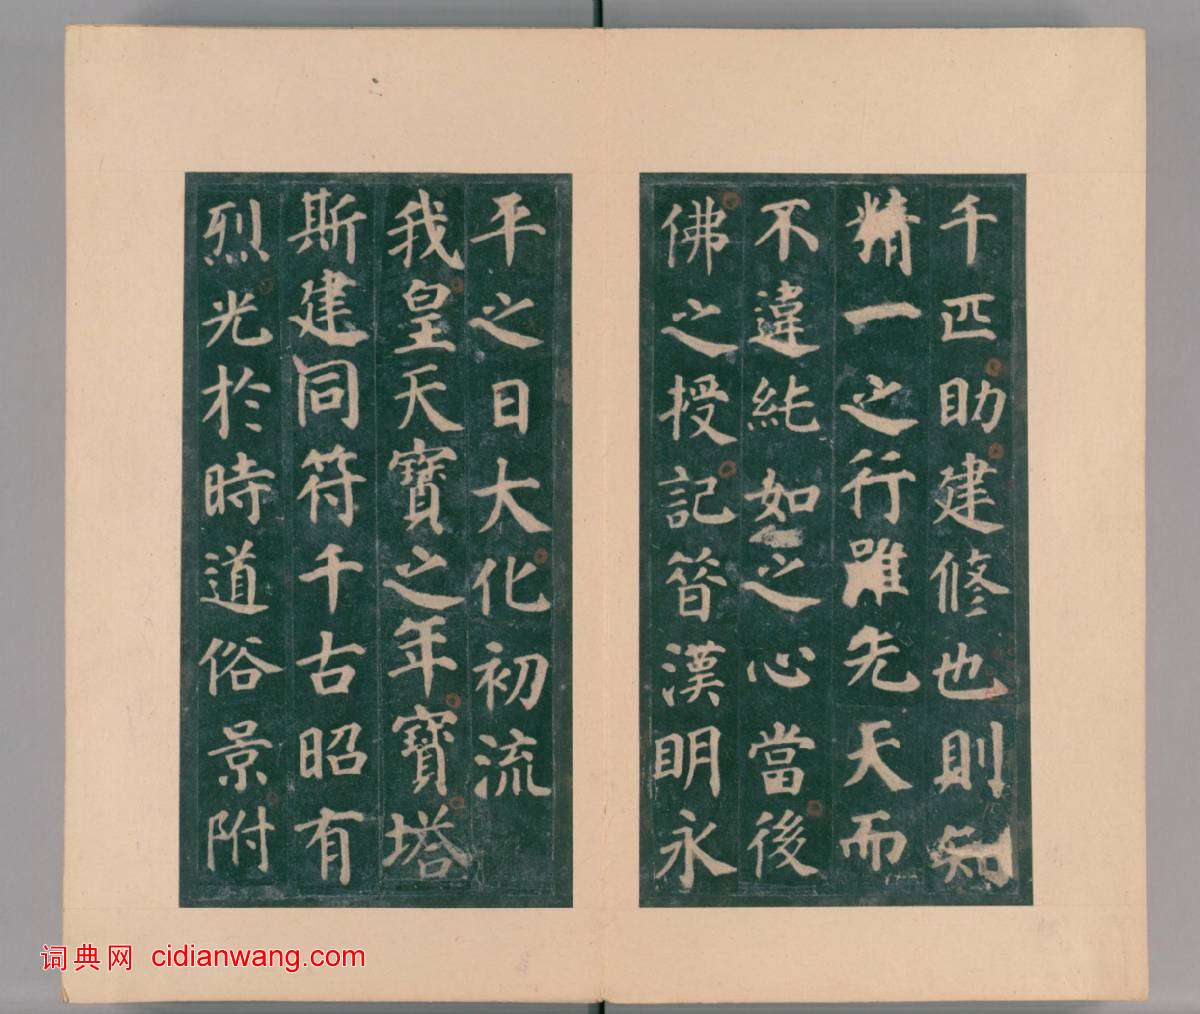 千匹助建修也則知
精一之行雖先天而
不違純如之心當後
佛之授記昔漢明永
平之日大化初流
我皇天寶之年寶塔
斯建同符千古昭有
烈光於時道俗景附
词典网 cidianwang.com